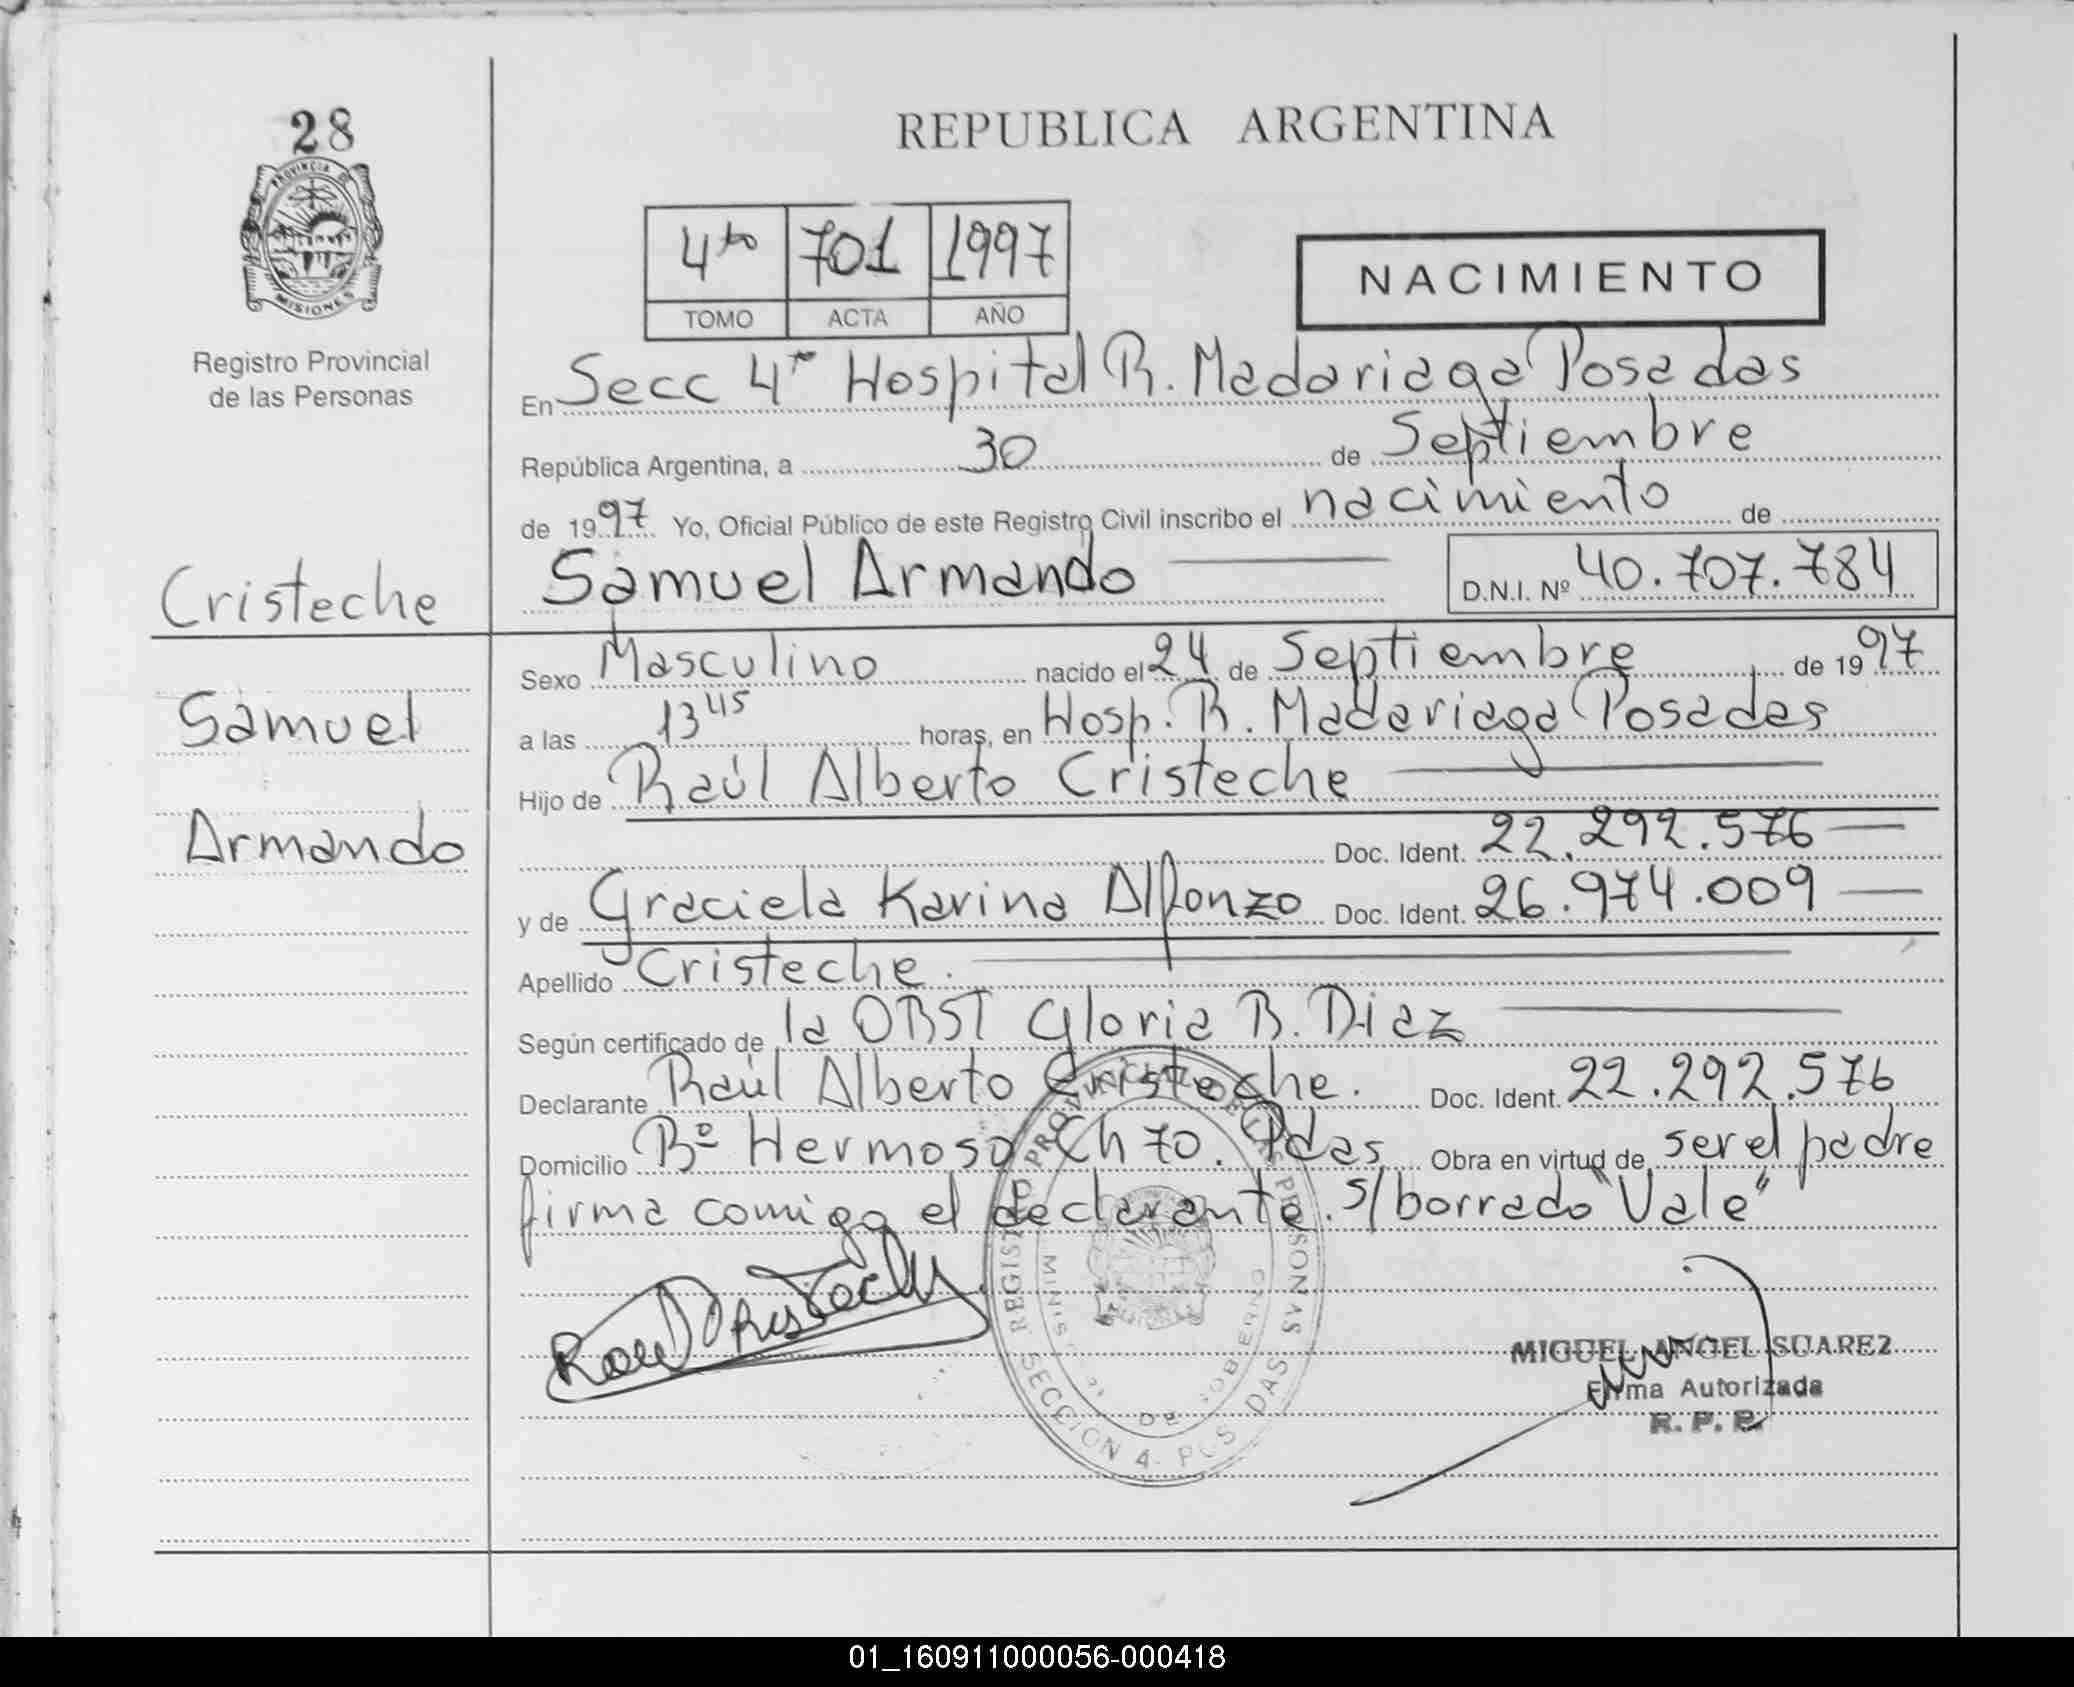 28
PROVINCIA DE
MISIONES
Registro Provincial
de las Personas
Cristeche
Samuel
Armando
REPUBLICA ARGENTINA
4to 701 1997
TOMO ACTA AÑO
NACIMIENTO
En Secc 4ta Hospital R. Madariaga Posadas
República Argentina, a 30 de Septiembre
de 1997 Yo, Oficial Público de este Registro Civil inscribo el nacimiento de
Samuel Armando D.N.I. Nº 40.707.784
Sexo Masculino nacido el 24 de Septiembre de 1997
a las 13 45 horas, en Hosp. R. Madariaga Posadas
Hijo de Raúl Alberto Cristeche
Doc. Ident. 22.292.576
y de Graciela Karina Alfonzo Doc. Ident. 26.974.009
Apellido Cristeche.
Según certificado de la OBST Gloria B. Diaz
Declarante Raúl Alberto Cristeche. Doc. Ident. 22.292.576
Domicilio Bº Hermoso Ch 70. Pdas Obra en virtud de ser el padre
firma comigo el declarante. s/borrado "Vale"
Raul Cristeche
REGISTRO PROVINCIAL DE LAS PERSONAS
SECCION 4 - POSADAS
MIGUEL ANGEL SUAREZ
Firma Autorizada
R. P. P.
01_160911000056-000418